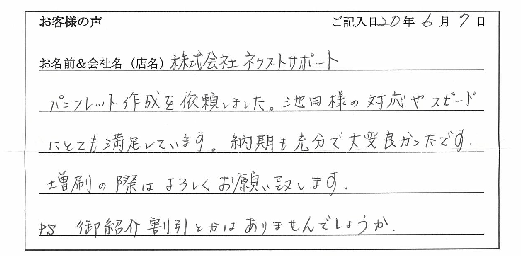 お客様の声 ご記入日20年6月7日
お名前&会社名（店名）株式会社ネクストサポート
パンフレット作成を依頼しました。池田様の対応やスピード
にとても満足しています。納期も充分で大変良かったです。
増刷の際はよろしくお願い致します。
PS 御紹介割引とかはありませんでしょうか。